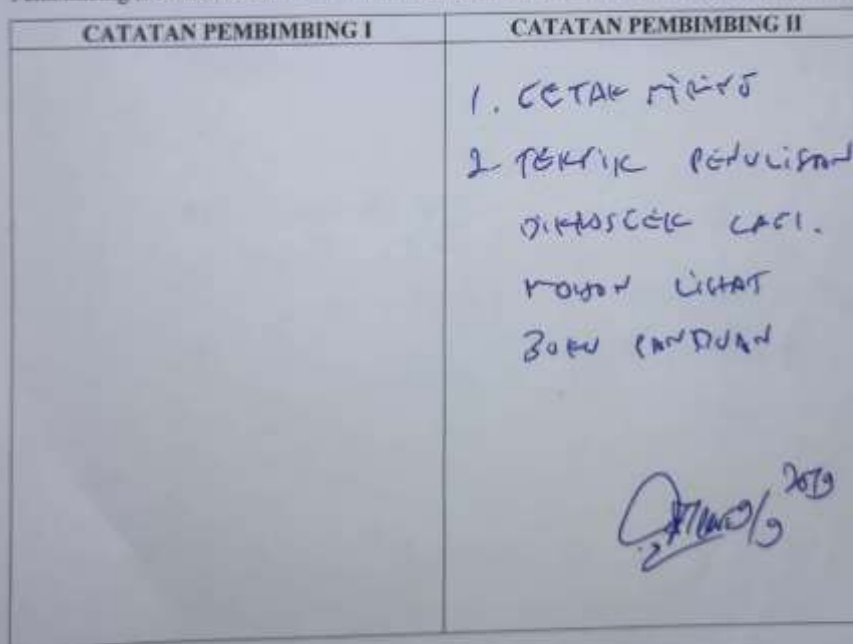 CATATAN PEMBIMBING I
CATATAN PEMBIMBING II
1. CETAK MIRING
2. TEKNIK PENULISAN
DIKROSCEK LAGI.
MOHON LIHAT
BUKU PANDUAN
2019